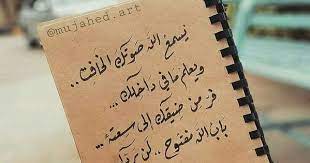 @mujahed.art
يسمع الله صوتك الخافت..
ويعلم ما في داخلك...
فر من ضيقك إلى سعته...
باب الله مفتوح.. لن